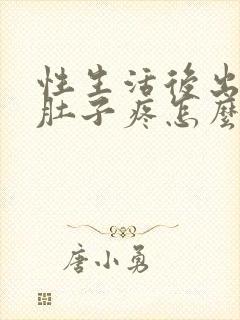 性生活後出
肚子疼怎麼
唐小勇